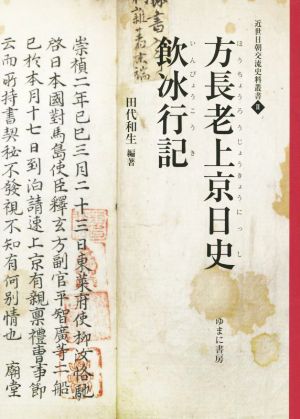 近世日朝交流史料叢書 II
方長老上京日史
ほうちょうろうじょうきょうにっし
飲冰行記
いんぴょうこうき
田代和生 編著
ゆまに書房
崇禎二年己巳三月二十三日東萊府使柳汝恪馳
啓日本國對馬島使臣釋玄方副官平智廣等二船
已於本月十七日到泊請速上京有親稟禮曹事節
云而所持書契秘不發視不知有何別情也 廟堂